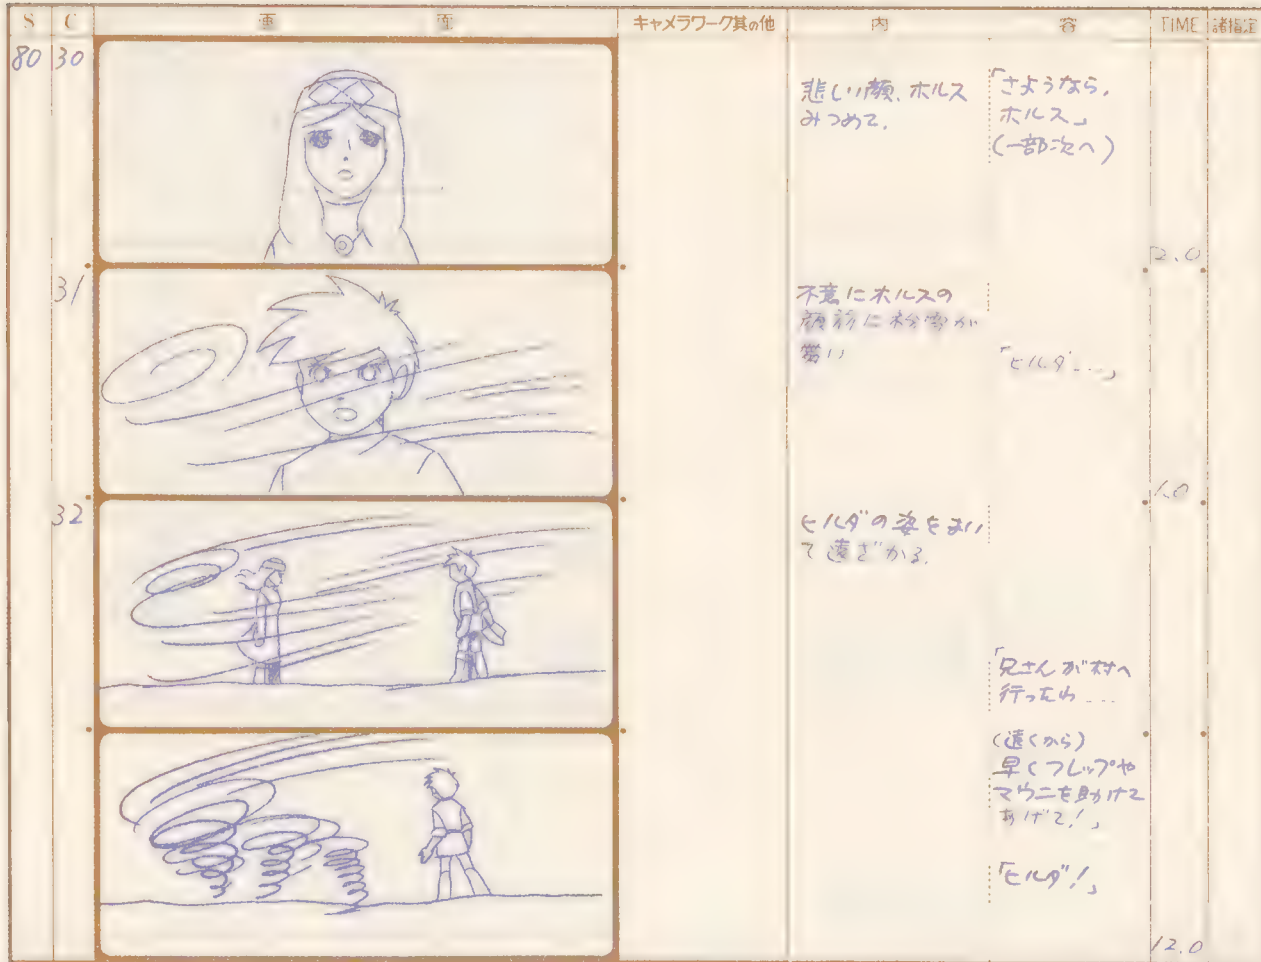 S C 画面 キャメラワーク其の他 内容 TIME 諸指定
80 30
悲しい顔、ホルス
みつめて、
「さようなら、
ホルス」
(一部次へ)
2.0
31
不意にホルスの
顔前に粉雪が
舞い
「ヒルダ…」
1.0
32
ヒルダの姿をまい
て遠ざかる。
「兄さんが村へ
行ったわ…
(遠くから)
早くフレップや
マウニを助けて
あげて!」
「ヒルダ!」
12.0